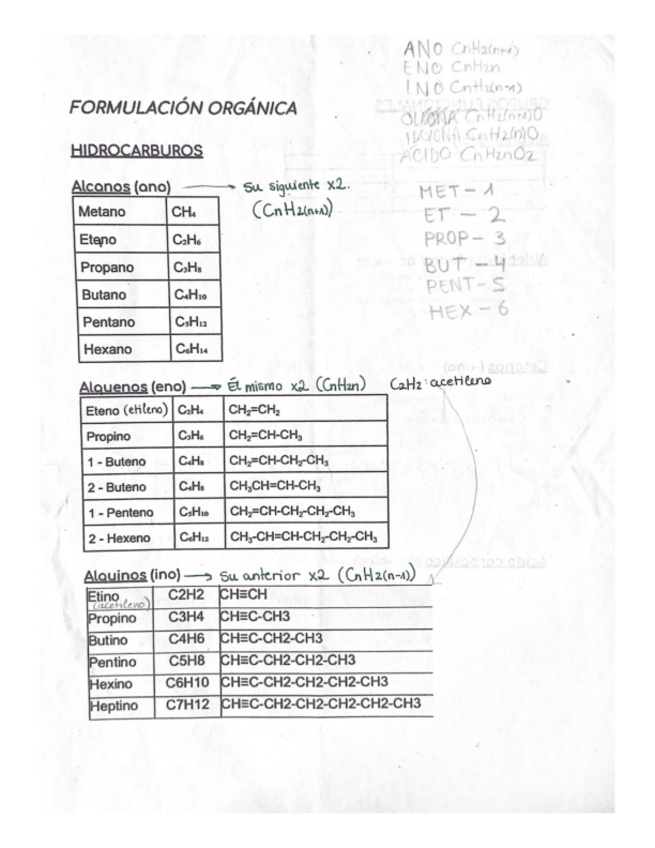 ANO CnH2(n+1)
ENO CnH2n
INO CnH2(n-1)
FORMULACIÓN ORGÁNICA
CnH2(n+1)O
CnH2(n)O
ÁCIDO CnH2nO2
HIDROCARBUROS
Alcanos (ano) → Su siguiente x2.
(CnH2(n+1))
MET - 1
ET - 2
PROP - 3
BUT - 4
PENT - 5
HEX - 6
Metano CH₄
Etano C₂H₆
Propano C₃H₈
Butano C₄H₁₀
Pentano C₅H₁₂
Hexano C₆H₁₄
Alquenos (eno) → Él mismo x2 (CnH2n) C2H2: acetileno
Eteno (etileno) C₂H₄ CH₂=CH₂
Propino C₃H₆ CH₂=CH-CH₃
1 - Buteno C₄H₈ CH₂=CH-CH₂-CH₃
2 - Buteno C₄H₈ CH₃CH=CH-CH₃
1 - Penteno C₅H₁₀ CH₂=CH-CH₂-CH₂-CH₃
2 - Hexeno C₆H₁₂ CH₃-CH=CH-CH₂-CH₂-CH₃
Alquinos (ino) → Su anterior x2 (CnH2(n-1))
Etino (acetileno) C2H2 CH≡CH
Propino C3H4 CH≡C-CH3
Butino C4H6 CH≡C-CH2-CH3
Pentino C5H8 CH≡C-CH2-CH2-CH3
Hexino C6H10 CH≡C-CH2-CH2-CH2-CH3
Heptino C7H12 CH≡C-CH2-CH2-CH2-CH2-CH3